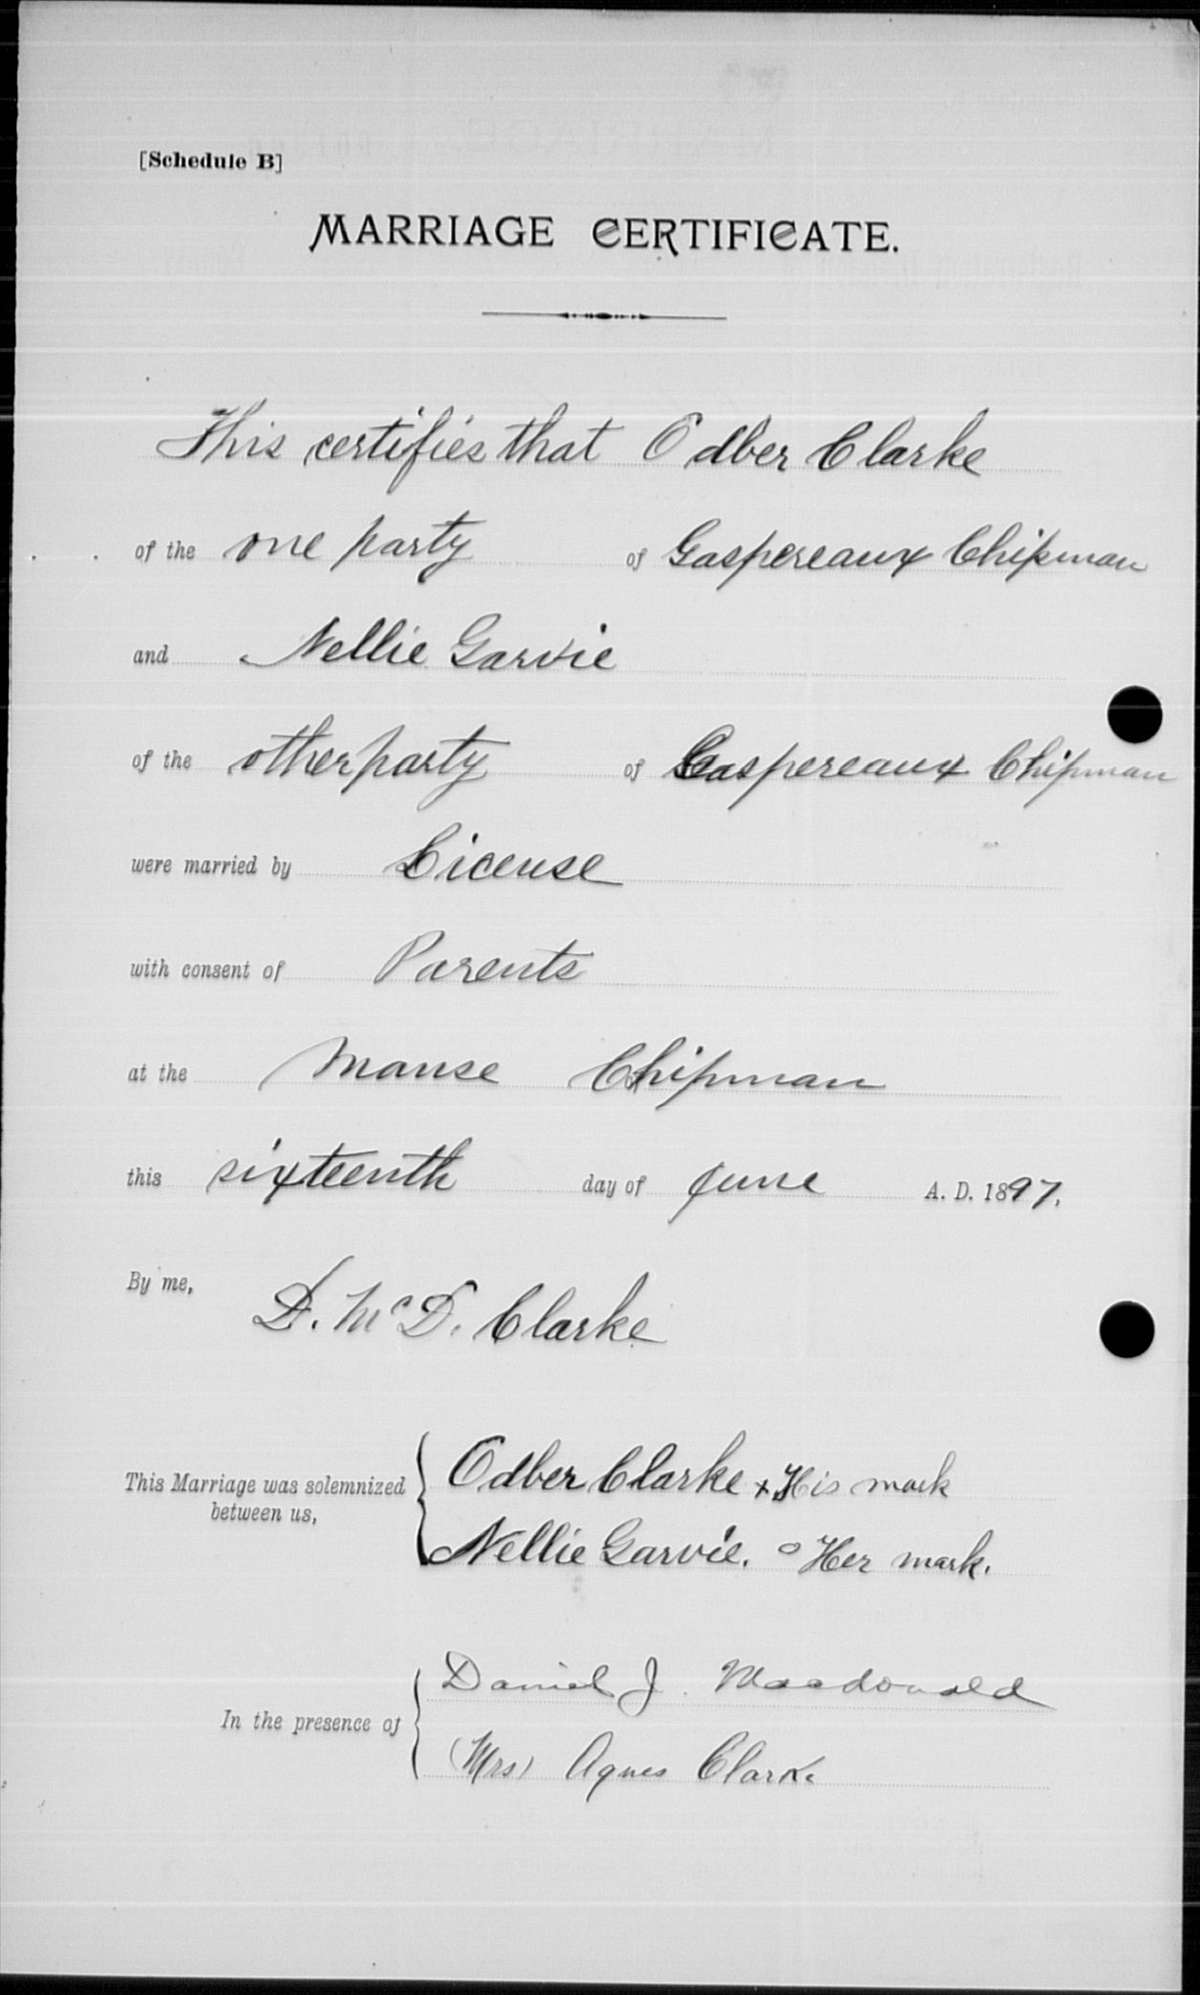 [Schedule B]
MARRIAGE CERTIFICATE.
This certifies that Odber Clarke
of the one party of Gaspereaux Chipman
and Nellie Garvie
of the other party of Gaspereaux Chipman
were married by License
with consent of Parents
at the Manse Chipman
this sixteenth day of June A. D. 1897.
By me,
D. McD. Clarke
This Marriage was solemnized
between us,
Odber Clarke x His mark
Nellie Garvie. o Her mark.
In the presence of
Daniel J. Macdonald
(Mrs) Agnes Clarke